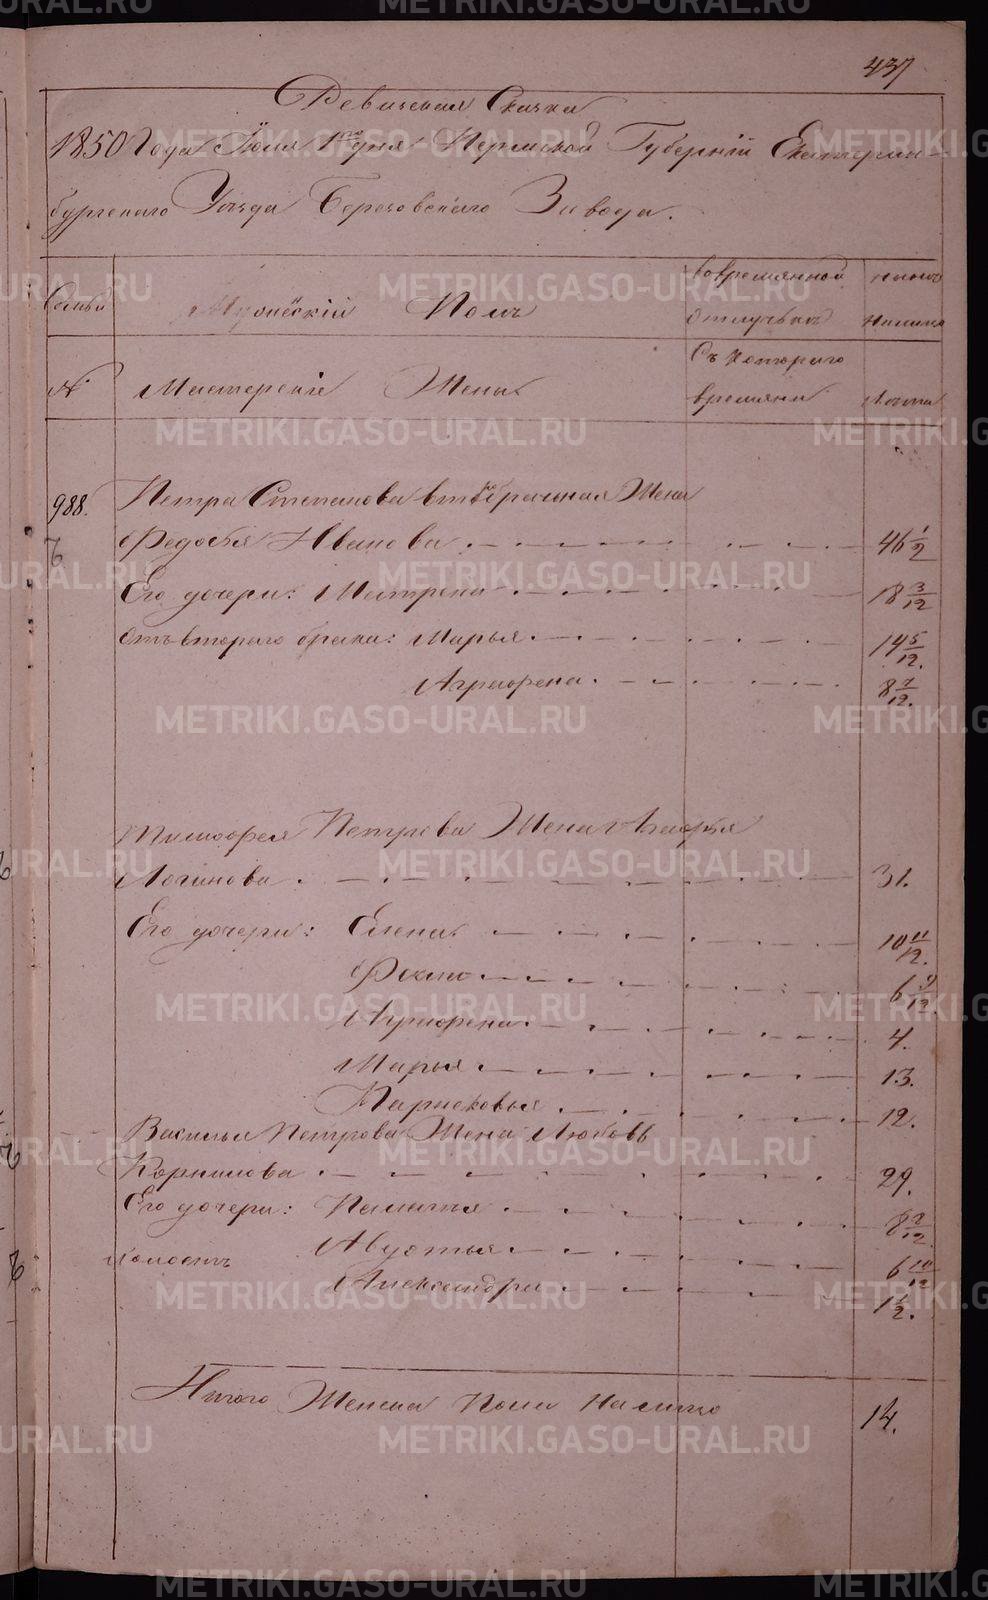 437
Ревизская Сказка
1850 Года Июля 1го дня Пермской Губерніи Екатерин-
бургскаго Уезда Березовскаго Завода.
Семьи
Женскій Полъ
во временной
отлучкѣ
ныне
налицо
№
Мастерскіе Жена
Съ котораго
времени
Лѣта
988.
Петра Степанова второбрачная Жена
Федосья Иванова 46 1/2
Его дочери: Матрена 18 3/12
Отъ втораго брака: Марья 14 5/12.
Аграфена 8 7/12.
Тимофея Петрова Жена
Логинова 31.
Его дочери: Елена 10 11/12.
Фекла 6 9/12.
Аграфена 4.
Марья 13.
Парасковья 12.
Василья Петрова Жена Любовь
Корнилова 29.
Его дочери: 8 7/12
Авдотья 6 10/12
Холостъ
Александра 1 1/2.
Итого Женска Пола Налицо 14.
METRIKI.GASO-URAL.RU